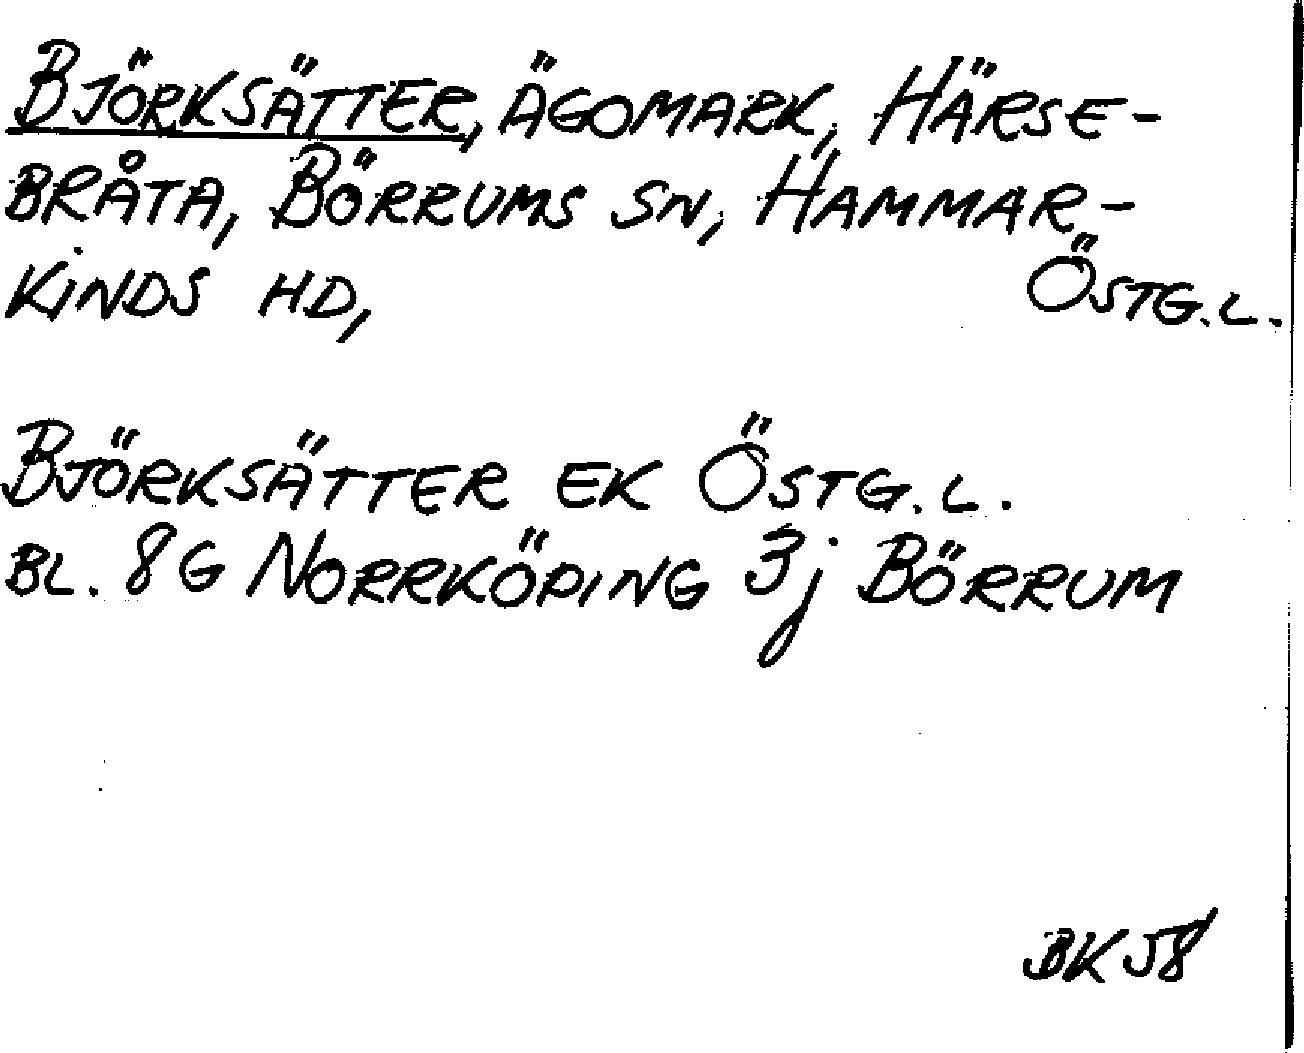 BJÖRKSÄTTER, ÄGOMARK, HÄRSE-
BRÅTA, BÖRRUMS SN, HAMMAR-
KINDS HD, ÖSTG.L.
BJÖRKSÄTTER EK ÖSTG.L.
BL. 8G NORRKÖPING 3j BÖRRUM
BK 58